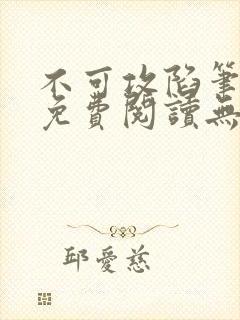 不可攻陷筆
免費閱讀無
邱愛慈